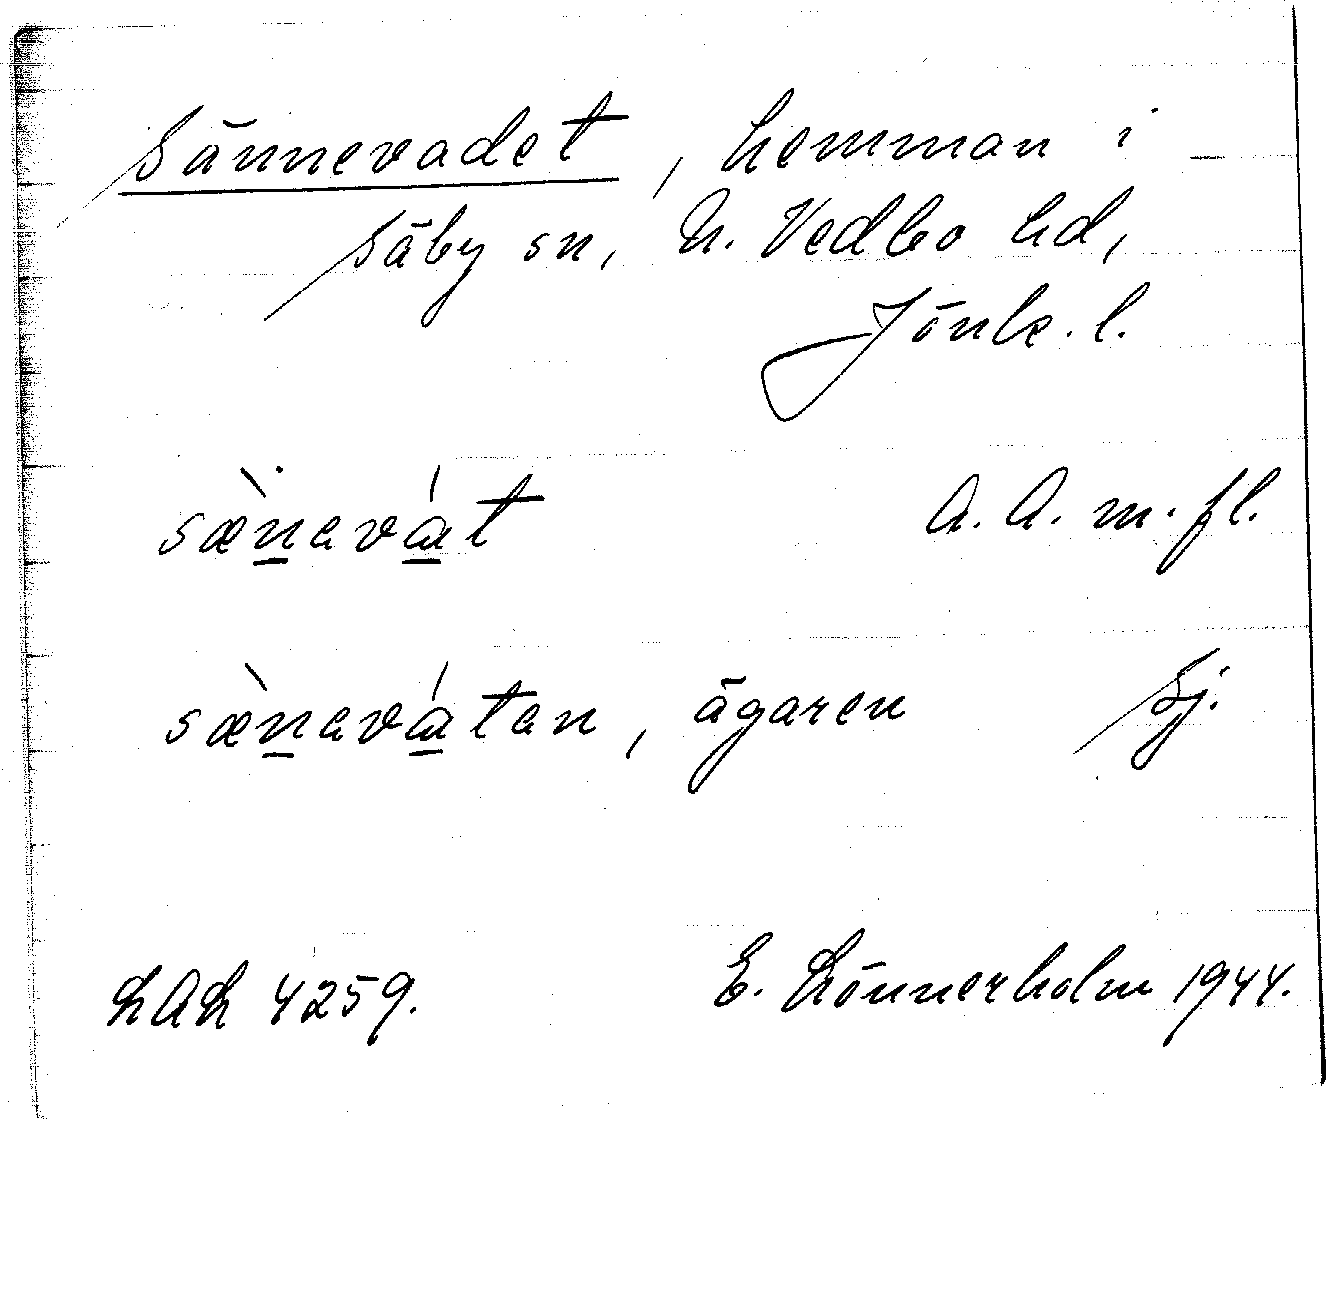 Sännevadet, hemman i
Säby sn, N. Vedbo hd,
Jönk. l.
sæ̀nevát A. A. m. fl.
sæ̀neváten, ägaren Sj.
LAL 4259. E. Lönnerholm 1944.